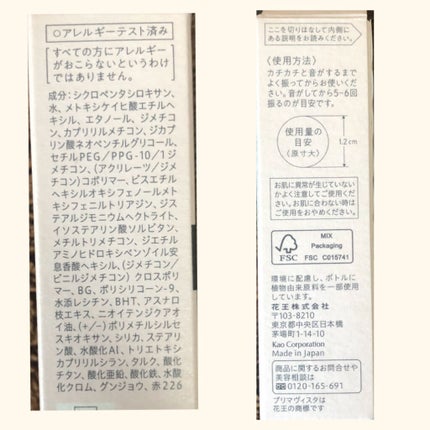 ○アレルギーテスト済み
すべての方にアレルギー
がおこらないというわけ
ではありません。
成分：シクロペンタシロキサン、
水、メトキシケイヒ酸エチルヘ
キシル、エタノール、ジメチコ
ン、カプリリルメチコン、ジカプリ
ン酸ネオペンチルグリコール、
セチルPEG／PPG-10／1ジ
メチコン、（アクリレーツ／ジメ
チコン）コポリマー、ビスエチル
ヘキシルオキシフェノールメト
キシフェニルトリアジン、ジス
テアルジモニウムヘクトライト、
イソステアリン酸ソルビタン、
メチルトリメチコン、ジエチル
アミノヒドロキシベンゾイル安
息香酸ヘキシル、（ジメチコン／
ビニルジメチコン）クロスポリ
マー、BG、ポリシリコーン-9、
水添レシチン、BHT、アスナロ
枝エキス、ニオイテンジクアオ
イ油、（＋／－）ポリメチルシルセ
スキオキサン、シリカ、ステアリ
ン酸、水酸化Al、トリエトキシ
カプリリルシラン、タルク、酸化
チタン、酸化亜鉛、酸化鉄、水酸
化クロム、グンジョウ、赤226
ここを切りはなして内側に
あるを お読みください。
〈使用方法〉
カチカチと音がするまで
よく振ってからお使いく
ださい。音がしてから5~6回
振るのが目安です。
使用量の
目安
（原寸大）
1.2cm
お肌に異常が生じていない
かよく注意してご使用くだ
さい。お肌に合わない時は
ご使用をおやめください。
FSC
MIX
Packaging
FSC C015741
環境に配慮し、ボトルに
植物由来原料を一部使用
しています。
花王株式会社
〒103-8210
東京都中央区日本橋
茅場町1-14-10
Kao Corporation
Made in Japan
商品に関するお問合せや
美容相談は
0120-165-691
プリマヴィスタは
花王の商標です